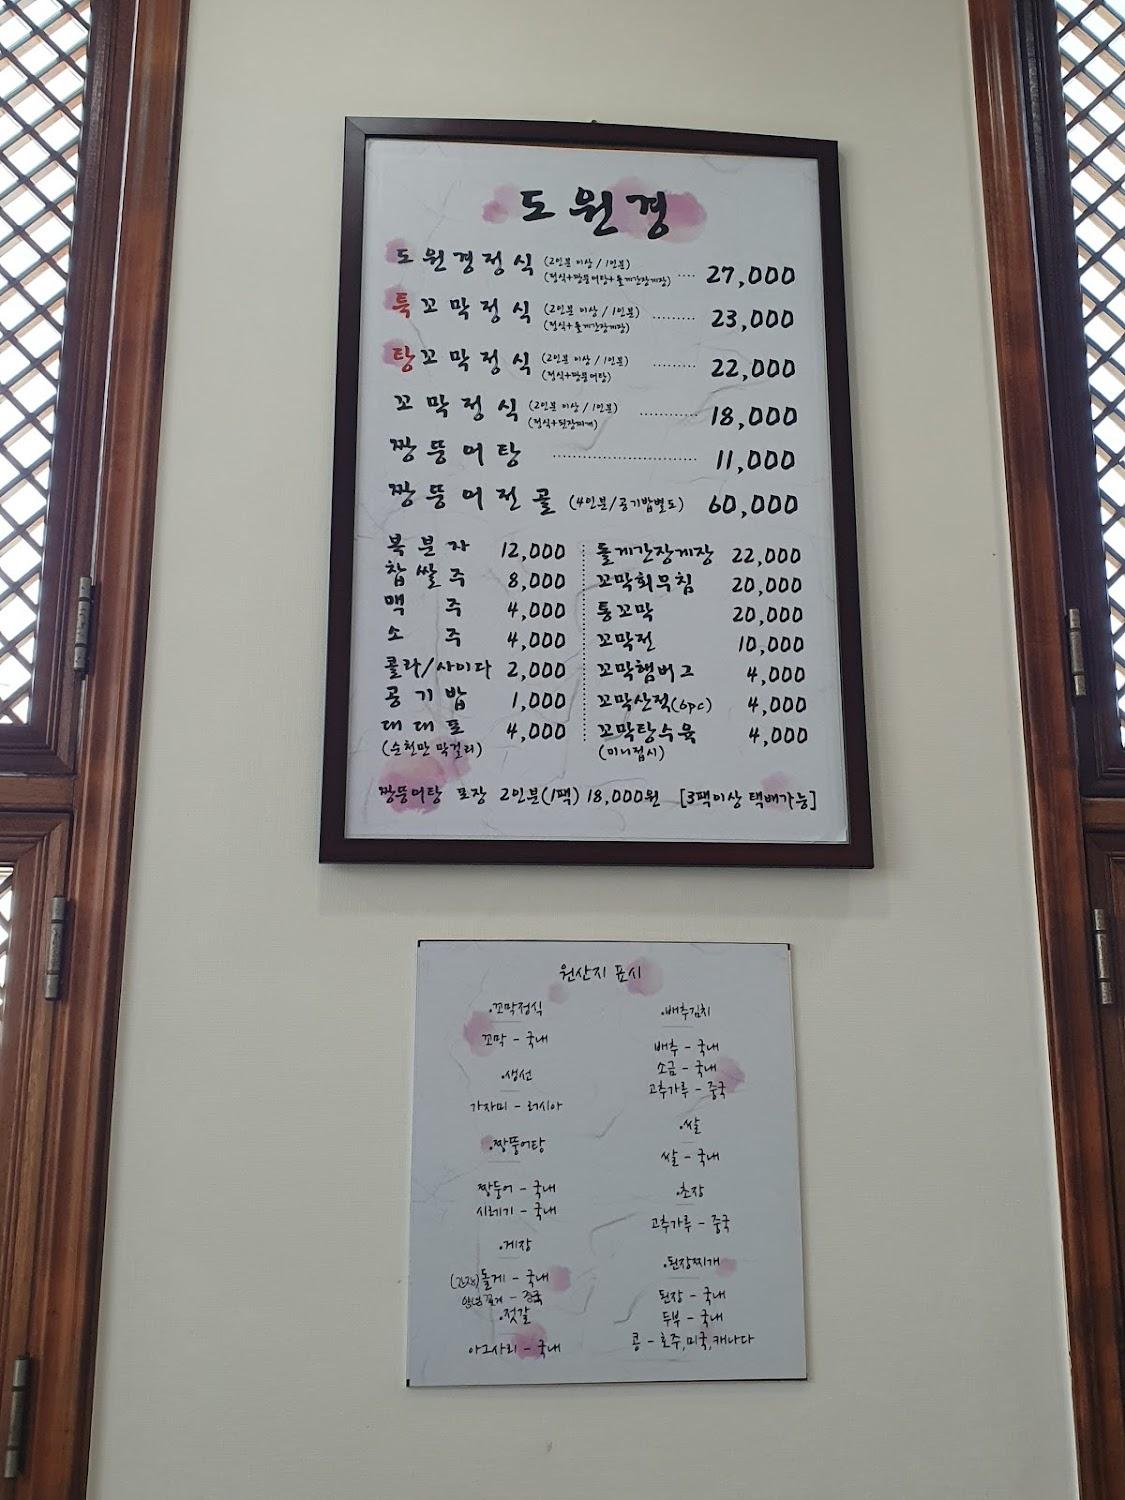 도원경
도원경정식 (2인분 이상/1인분) (정식+짱뚱어탕+돌게간장게장) .... 27,000
특꼬막정식 (2인분 이상/1인분) (정식+돌게간장게장) ......... 23,000
탕꼬막정식 (2인분 이상/1인분) (정식+짱뚱어탕) ......... 22,000
꼬막정식 (2인분 이상/1인분) (정식+된장찌개) ............ 18,000
짱뚱어탕 .............................. 11,000
짱뚱어전골 (4인분/공기밥별도) 60,000
복분자 12,000
찹쌀주 8,000
맥주 4,000
소주 4,000
콜라/사이다 2,000
공기밥 1,000
대대포 4,000
(순천만 막걸리)
돌게간장게장 22,000
꼬막회무침 20,000
통꼬막 20,000
꼬막전 10,000
꼬막햄버그 4,000
꼬막산적(6pc) 4,000
꼬막탕수육 4,000
(미니접시)
짱뚱어탕 포장 2인분(1팩) 18,000원 [3팩이상 택배가능]
원산지 표시
.꼬막정식
꼬막 - 국내
.생선
가자미 - 러시아
.짱뚱어탕
짱뚱어 - 국내
시레기 - 국내
.게장
(간장)돌게 - 국내
양념꽃게 - 중국
.젓갈
아그사리 - 국내
.배추김치
배추 - 국내
소금 - 국내
고추가루 - 중국
.쌀
쌀 - 국내
.초장
고추가루 - 중국
.된장찌개
된장 - 국내
두부 - 국내
콩 - 호주,미국,캐나다